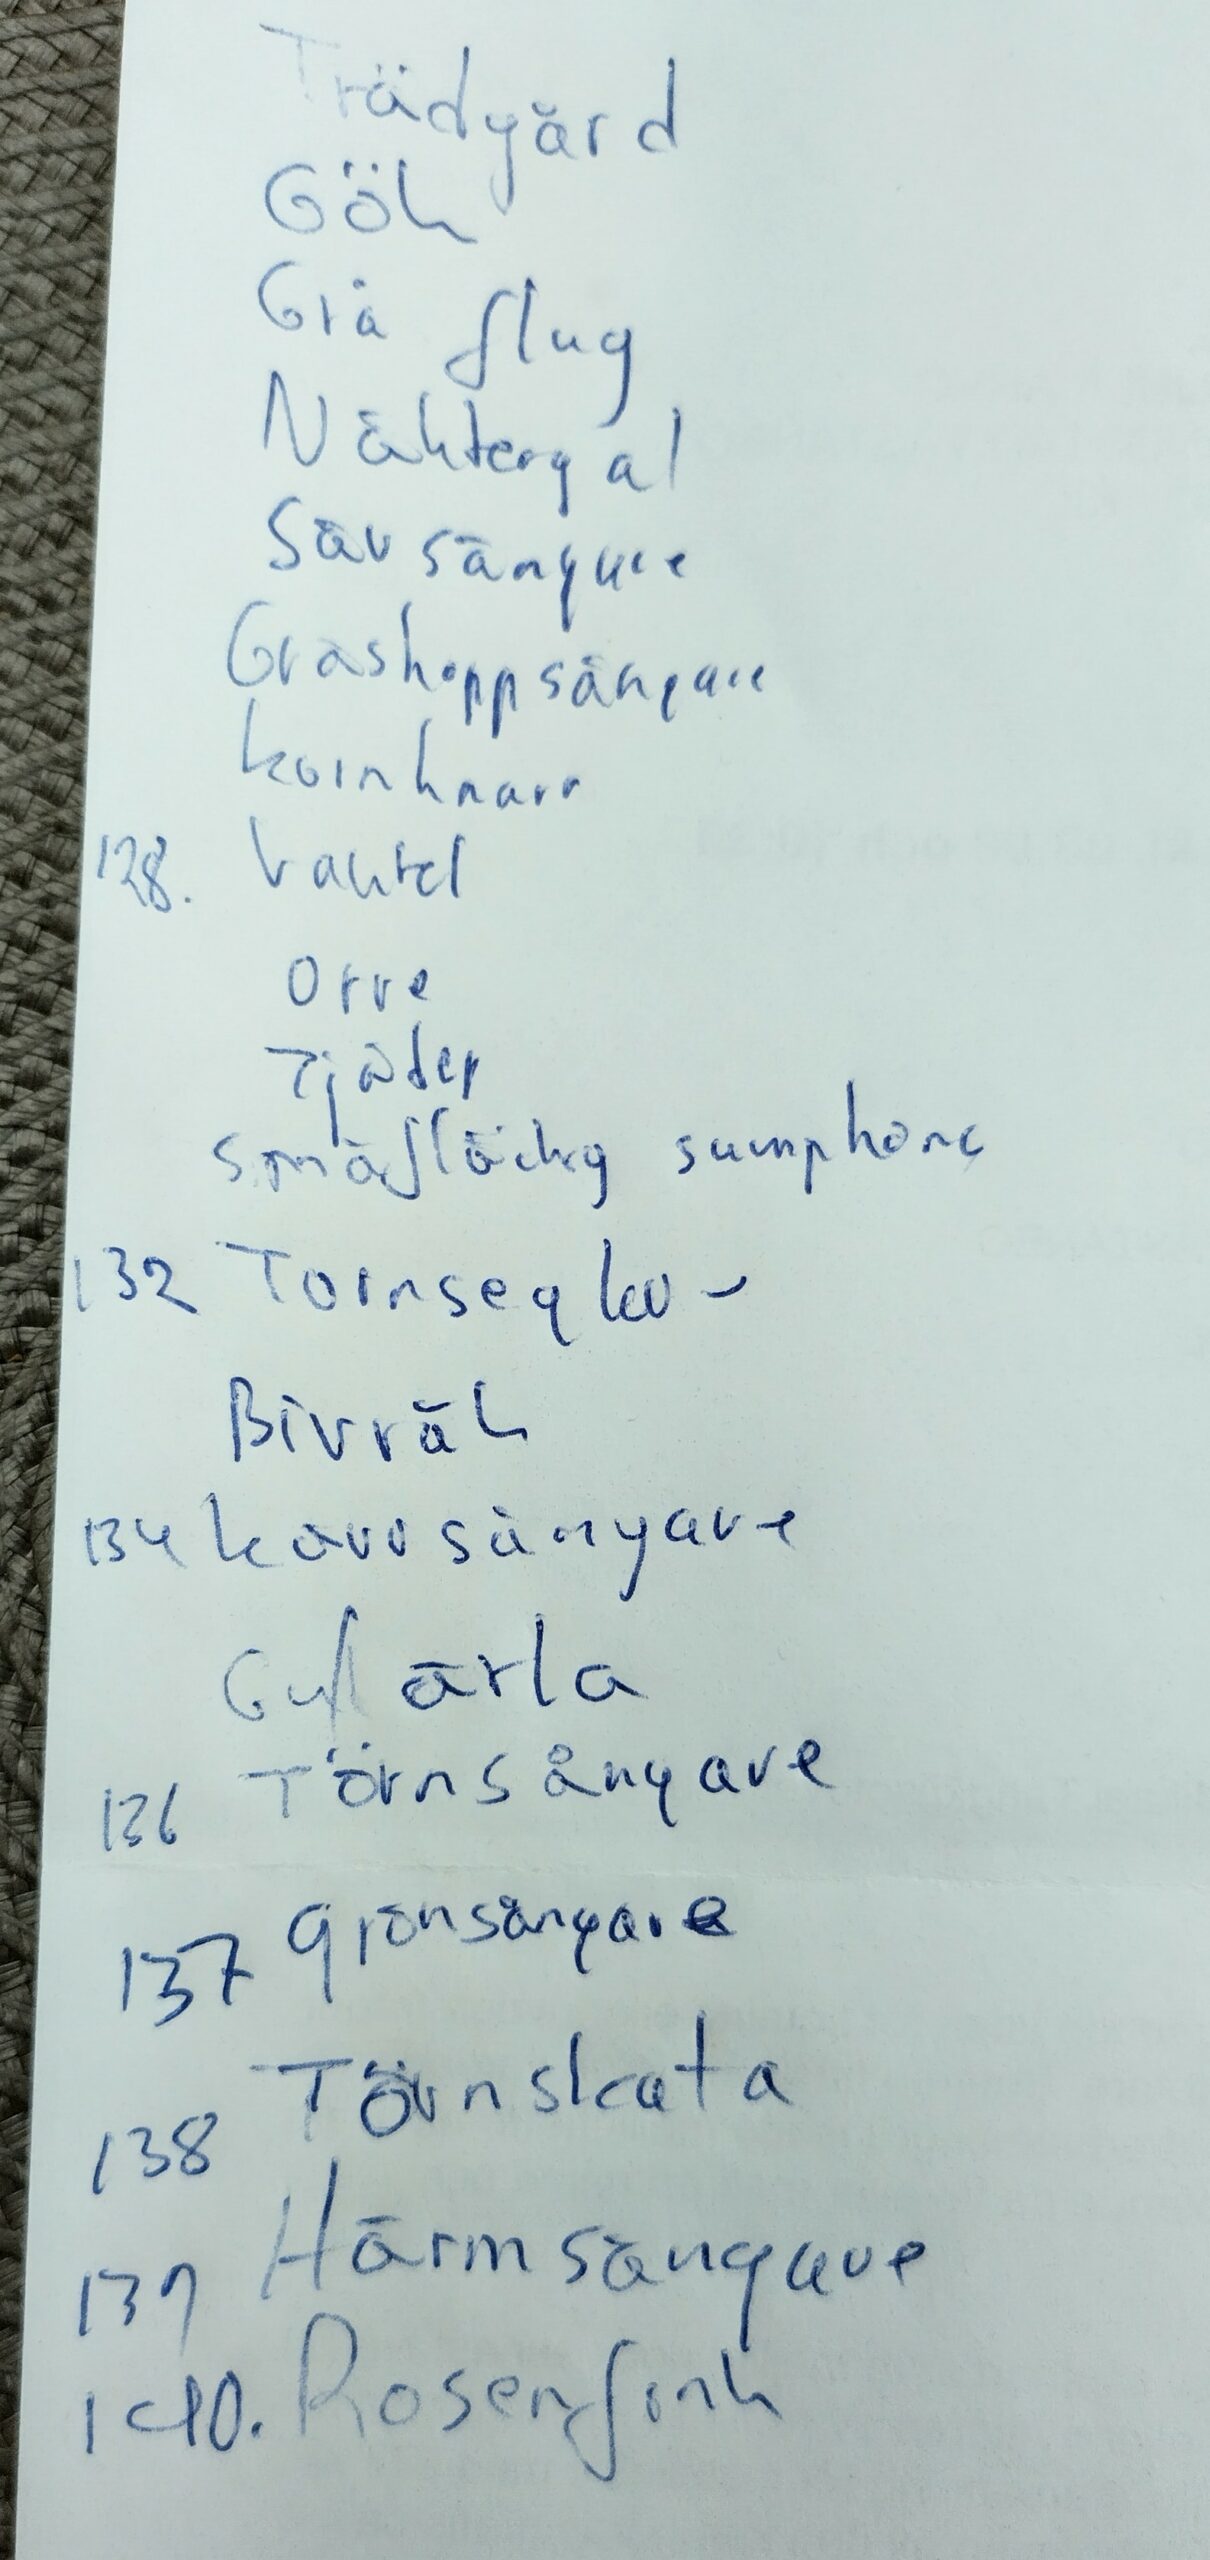 Trädgård
Gök
Grå flug
Näktergal
Sävsångare
Gräshoppsångare
kornknarr
128. Vaktel
Orre
Tjäder
Småfläckig sumphöna
132 Tornsegla-
Bivråk
134 kärrsångare
Gulärla
136 Törnsångare
137 grönsångare
138 Törnskata
139 Härmsångare
140. Rosenfink